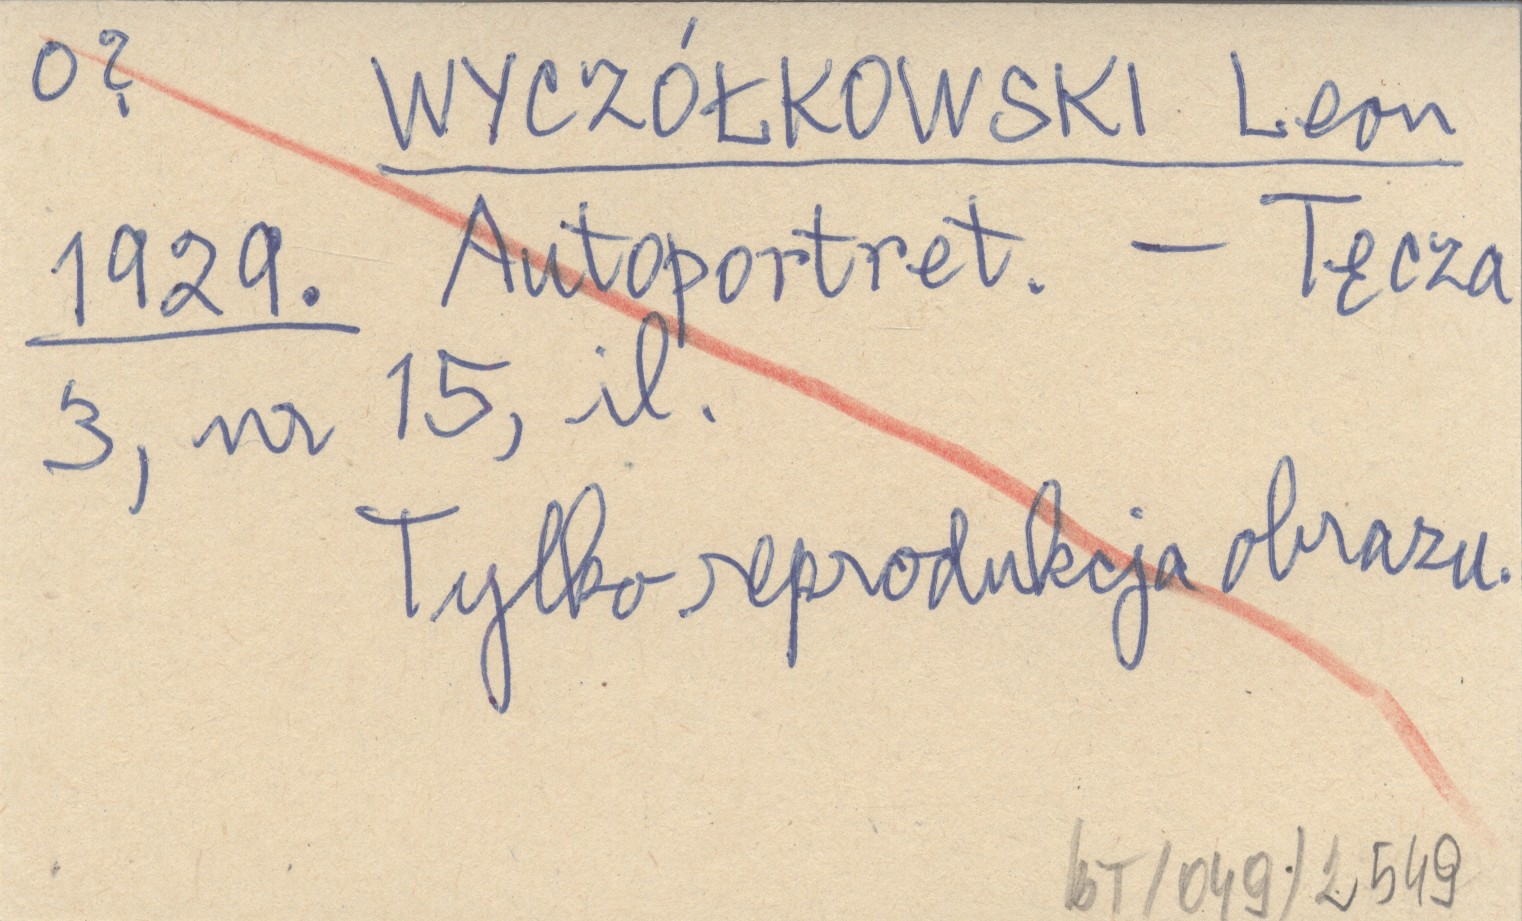 o? WYCZÓŁKOWSKI Leon
1929. Autoportret. — Tęcza
3, nr 15, il.
Tylko reprodukcja obrazu.
/049/2549